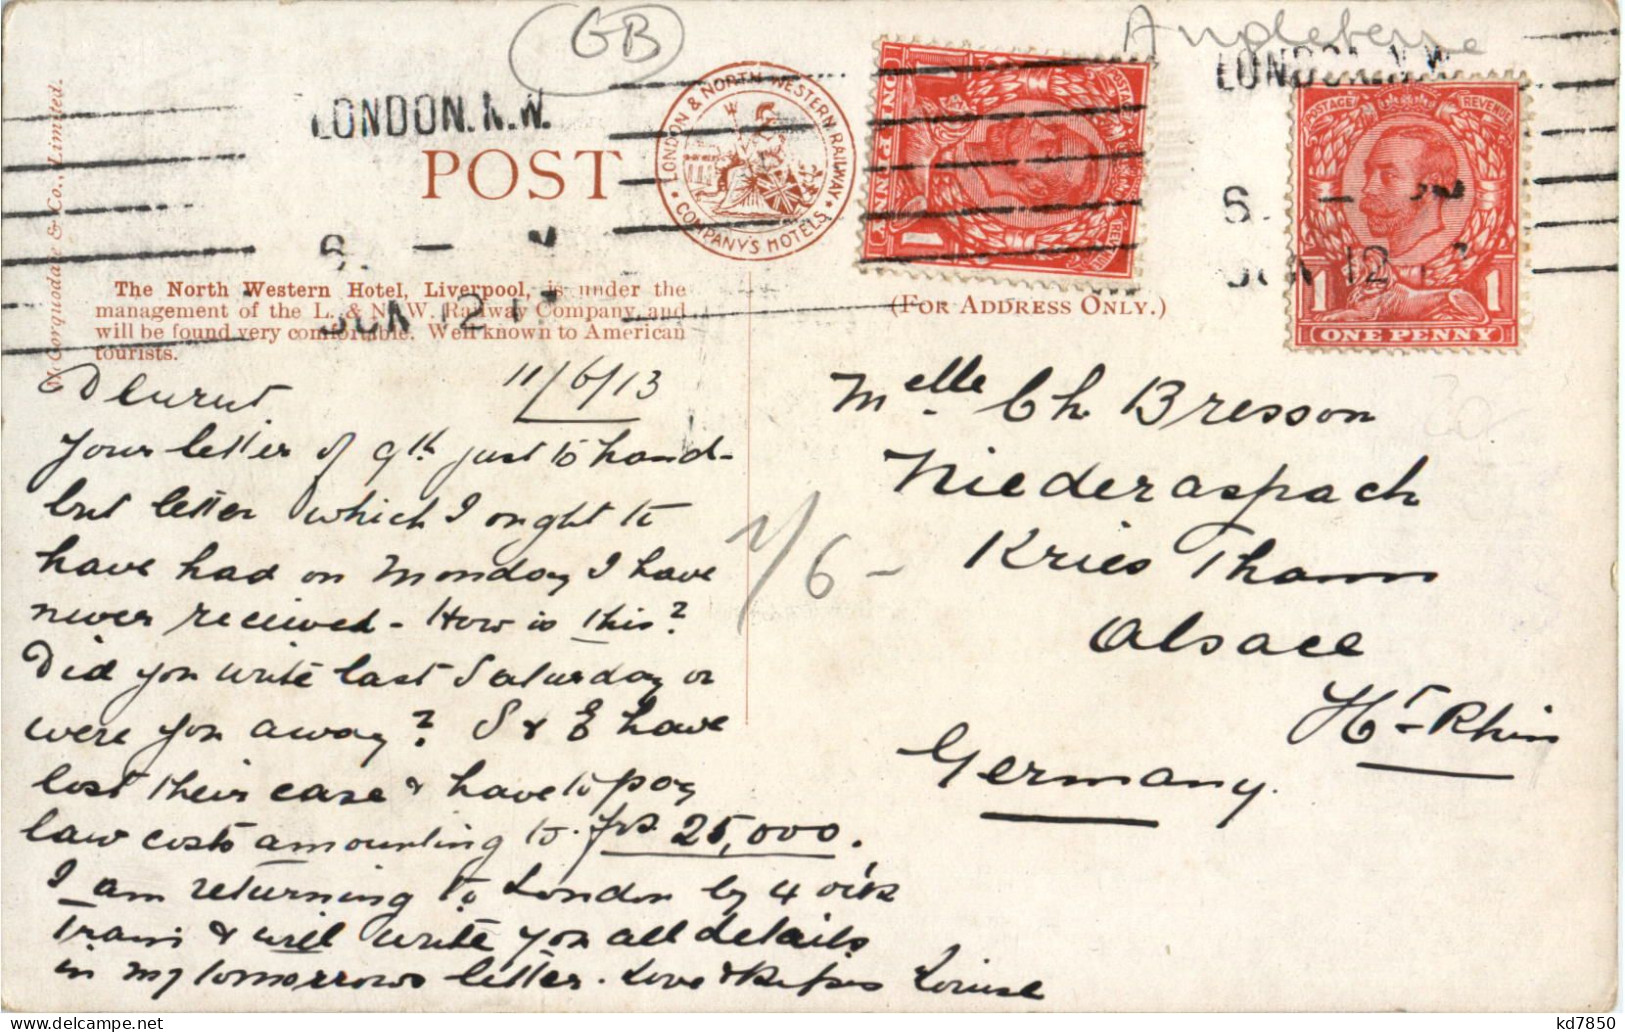 GB
Angleterre
LONDON. N.W.
LONDON. N.W.
POST
LONDON & NORTH WESTERN RAILWAY
COMPANY'S HOTELS
ONE PENNY
POSTAGE REVENUE
1 1
ONE PENNY
JUN 12 13
JUN 12
Mc Corquodale & Co., Limited.
The North Western Hotel, Liverpool, is under the
management of the L. & N. W. Railway Company, and
will be found very comfortable. Well known to American
tourists.
(FOR ADDRESS ONLY.)
11/6/13
Your letter of 9th just to hand-
but letter which I ought to
have had on Monday I have
never received - How is this?
Did you write last Saturday or
were you away? S & E have
lost their case & have to pay
law costs amounting to frs. 25,000.
I am returning to London by 4 o'ck
train & will write you all details
in my tomorrows letter. Love & Louise
Melle Ch Bresson
Niederaspach
Kries Thann
Alsace
Ht-Rhin
Germany.
kd7850